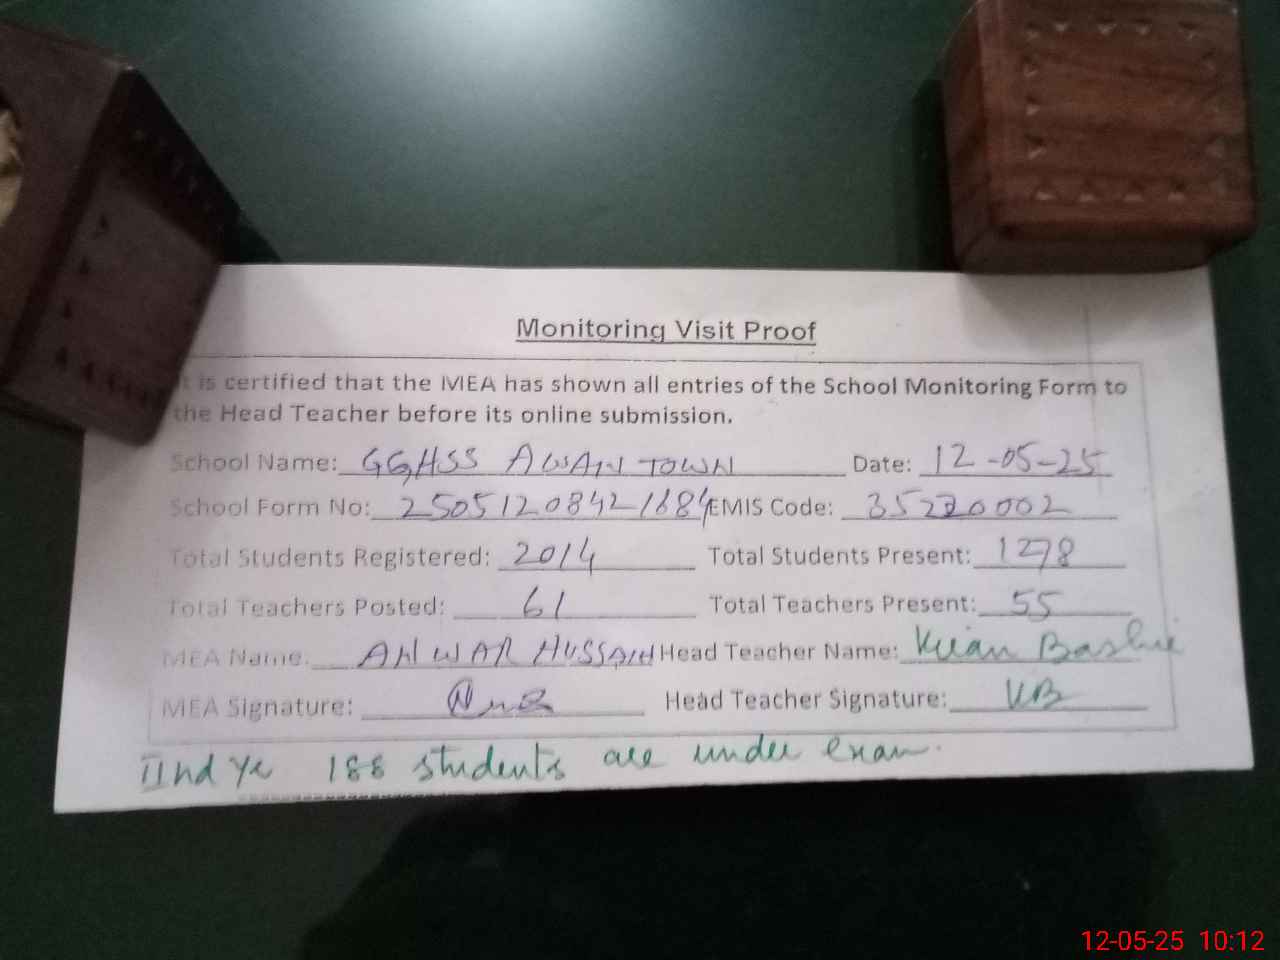 Monitoring Visit Proof
It is certified that the MEA has shown all entries of the School Monitoring Form to
the Head Teacher before its online submission.
School Name: GGHSS AWAN TOWN Date: 12-05-25
School Form No: 25051208421684 EMIS Code: 35220002
Total Students Registered: 2014 Total Students Present: 1278
Total Teachers Posted: 61 Total Teachers Present: 55
MEA Name: ANWAR HUSSAIN Head Teacher Name: Kiran Bashir
MEA Signature: Head Teacher Signature: KB
IInd Yr 188 students are under exam.
12-05-25 10:12